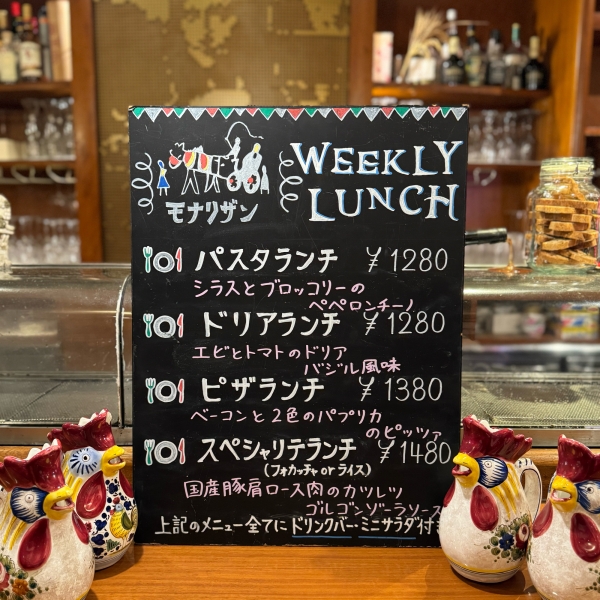 WEEKLY
LUNCH
モナリザン
パスタランチ ¥1280
シラスとブロッコリーの
ペペロンチーノ
ドリアランチ ¥1280
エビとトマトのドリア
バジル風味
ピザランチ ¥1380
ベーコンと2色のパプリカ
のピッツァ
スペシャリテランチ ¥1480
(フォカッチャ or ライス)
国産豚肩ロース肉のカツレツ
ゴルゴンゾーラソース
上記のメニュー全てにドリンクバー・ミニサラダ付